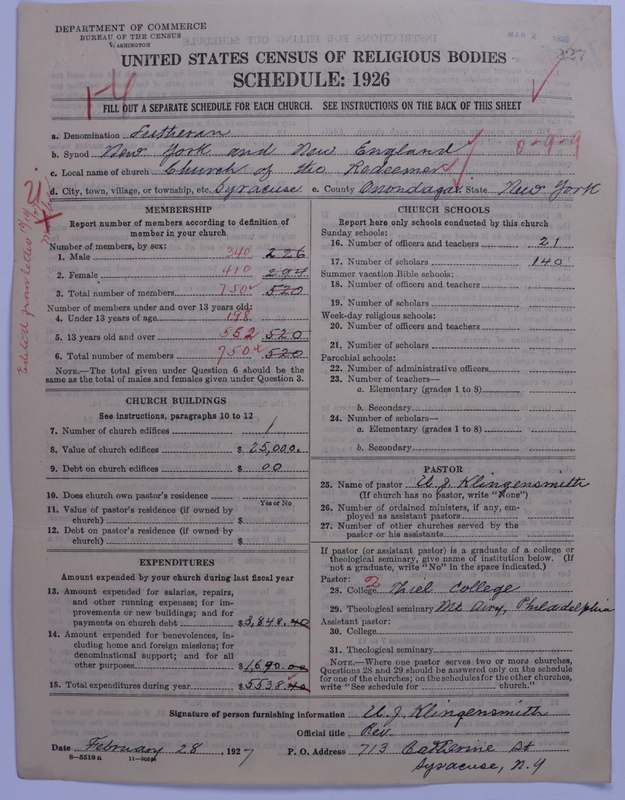 DEPARTMENT OF COMMERCE
BUREAU OF THE CENSUS
WASHINGTON
227
UNITED STATES CENSUS OF RELIGIOUS BODIES
SCHEDULE: 1926
1-4
FILL OUT A SEPARATE SCHEDULE FOR EACH CHURCH. SEE INSTRUCTIONS ON THE BACK OF THIS SHEET
a. Denomination Lutheran
b. Synod New York and New England 0-9-9
c. Local name of church Church of the Redeemer
d. City, town, village, or township, etc. Syracuse e. County Onondaga State New York
MEMBERSHIP
Report number of members according to definition of
member in your church
Number of members, by sex:
1. Male 340 226
2. Female 410 294
3. Total number of members 750 520
Number of members under and over 13 years old:
4. Under 13 years of age 198
5. 13 years old and over 552 520
6. Total number of members 750 520
NOTE.—The total given under Question 6 should be
same as the total of males and females given under Question 3.
CHURCH BUILDINGS
See instructions, paragraphs 10 to 12
7. Number of church edifices 1
8. Value of church edifices $ 25,000.
9. Debt on church edifices $ 00
10. Does church own pastor's residence
Yes or No
11. Value of pastor's residence (if owned by
church) $
12. Debt on pastor's residence (if owned by
church) $
EXPENDITURES
Amount expended by your church during last fiscal year
13. Amount expended for salaries, repairs,
and other running expenses; for im-
provements or new buildings; and for
payments on church debt $3,848.40
14. Amount expended for benevolences, in-
cluding home and foreign missions; for
denominational support; and for all
other purposes $1,690.00
15. Total expenditures during year $5538.40
CHURCH SCHOOLS
Report here only schools conducted by this church
Sunday schools:
16. Number of officers and teachers 21
17. Number of scholars 140
Summer vacation Bible schools:
18. Number of officers and teachers
19. Number of scholars
Week-day religious schools:
20. Number of officers and teachers
21. Number of scholars
Parochial schools:
22. Number of administrative officers
23. Number of teachers—
a. Elementary (grades 1 to 8)
b. Secondary
24. Number of scholars—
a. Elementary (grades 1 to 8)
b. Secondary
PASTOR
25. Name of pastor U. J. Klingensmith
(If church has no pastor, write "None")
26. Number of ordained ministers, if any, em-
ployed as assistant pastors
27. Number of other churches served by the
pastor or his assistants
If pastor (or assistant pastor) is a graduate of a college or
theological seminary, give name of institution below. (If
not a graduate, write "No" in the space indicated.)
Pastor: 2
28. College Thiel College
29. Theological seminary Mt. Airy, Philadelphia
Assistant pastor:
30. College
31. Theological seminary
NOTE.—Where one pastor serves two or more churches,
Questions 28 and 29 should be answered only on the schedule
for one of the churches; on the schedules for the other churches,
write "See schedule for church."
Signature of person furnishing information U. J. Klingensmith
Official title Rev.
Date February 28, 1927 P. O. Address 713 Catherine St
8-5518a
Syracuse, N.Y